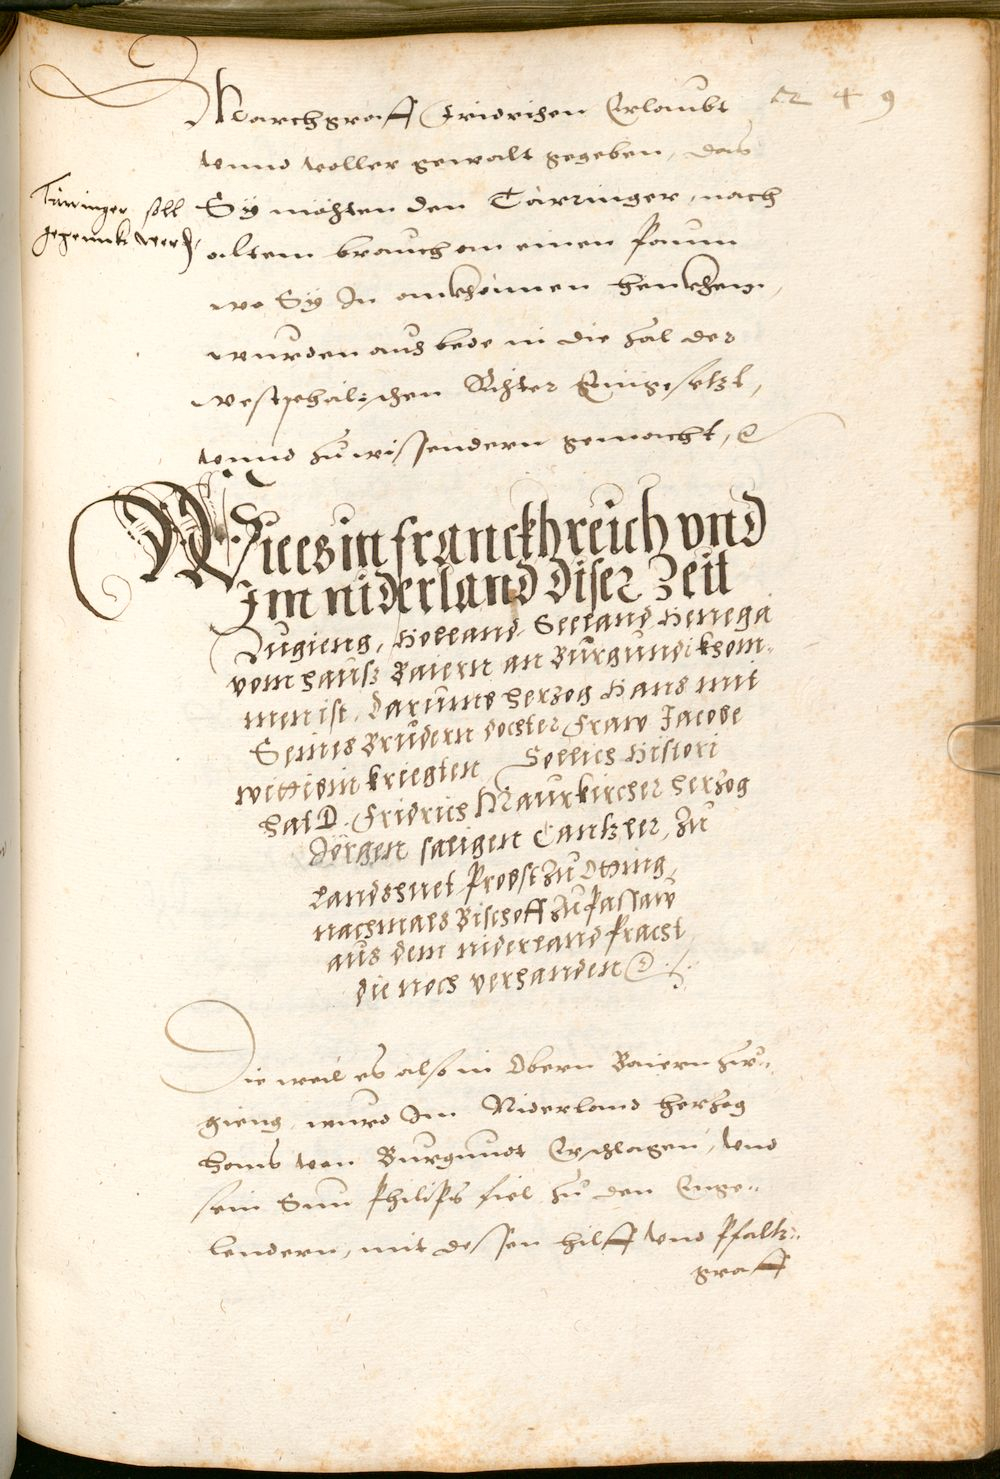 1249
Marchgraff Fridrichen Erlaubt
vnnd voller gewalt gegeben, das
Türringer soll
gehennkt werd
Sÿ möchten den Törringer, nach
altem brauch an einen Paum
wo Sÿ In ankhömmen henkhen,
wurden aus bede in die zal der
westphälischen Richter Eingesetzt,
vnnd zu wissendern gemacht, &
Wie es in franckhreich vnd
Im niderland diser Zeit
Zugieng, Holland Seeland Henega
vom hauß Baiern an Burgundi khom-
men ist, darumb herzog Hans mit
Seines Brudern dochter Fraw Jacobe
wittibin kriegten Sollichs Histori
hat D. Fridrich Maurkircher herzog
Jörgen saligen Cantzler, zu
Landshuet Probst zu Otting
nachmals Bischoff zu Passaw
aus dem niderland Pracht
die noch verhanden &
Die weil es also in Obern Baiern zu-
gieng, wurd Im Niderland herzog
hans von Burgundt Erschlagen, vnd
sein Sun Philips fiel zu den Enge-
lendern, mit dessen hilff vnd Pfaltz-
graff